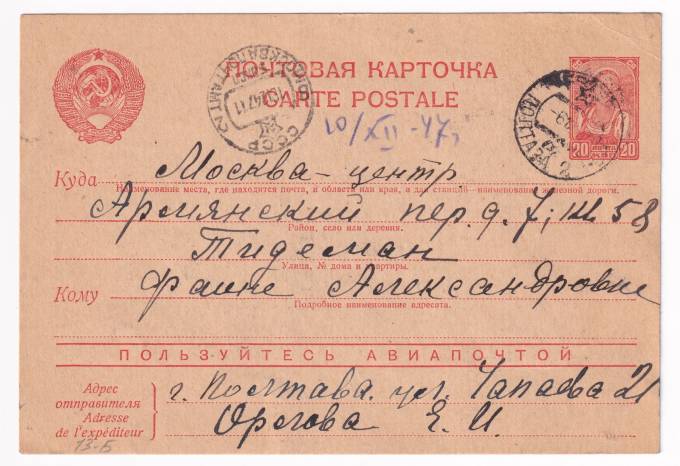 ПОЧТОВАЯ КАРТОЧКА
CARTE POSTALE
10/XII-47,
20 20
Куда Москва-центр
Наименование места, где находится почта, и области или края, а для станций-наименование железной дороги.
Армянский пер. д. 7; кв 58
Район, село или деревня.
Тидеман
Улица, № дома и квартиры.
Кому Фаине Александровне
Подробное наименование адресата.
ПОЛЬЗУЙТЕСЬ АВИАПОЧТОЙ
Адрес отправителя
Adresse de l'expéditeur
г. Полтава. ул. Чапаева 21
Орлова Е. И.
13-Б